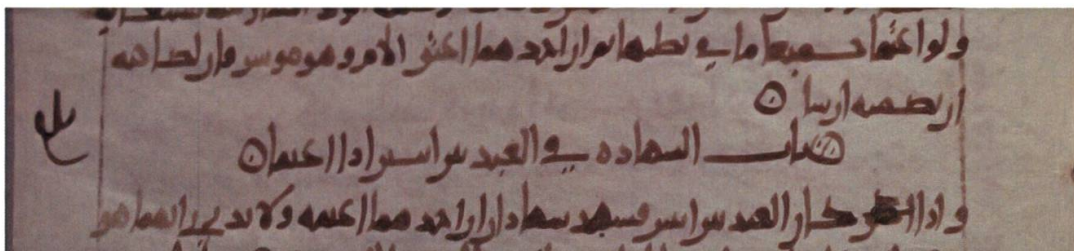 ولو اعتقا جميعا ما في بطنها ثم ان احدهما اعتق الام وهو موسر فان لصاحبه
ان يضمنه ان شا
باب الشهاده في العبد بين اثنين اذا اعتقا
واذا كان العبد بين اثنين فشهد شاهدان ان احدهما اعتقه ولا يدري ايهما هو